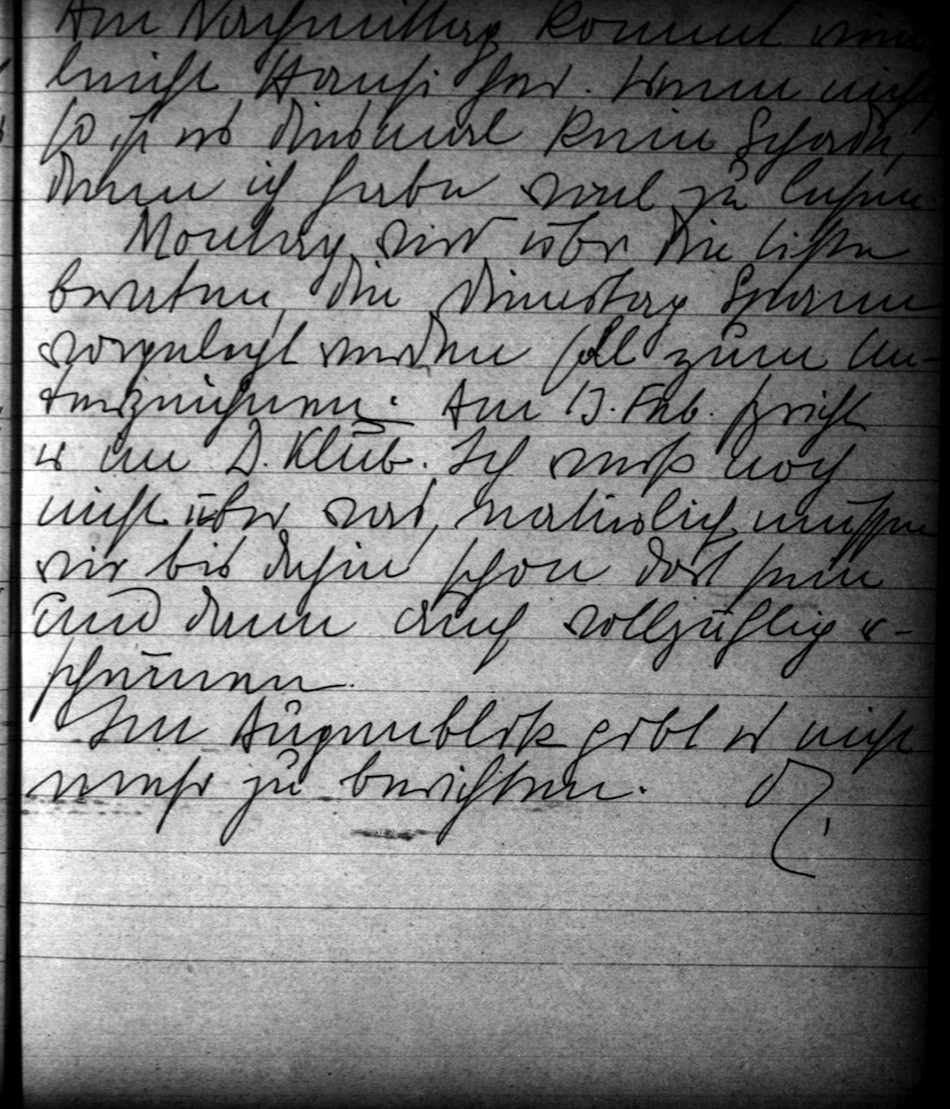 Am Nachmittag kommt viel-
leicht Hansi her. Wenn nicht,
so ist es diesmal kein Schade,
denn ich habe viel zu lesen.
Montag wird über die Liste
beraten, die Dienstag Spann
vorgelegt werden soll zum Un-
terzeichnen. Am 13. Feb. spricht
er im D. Klub. Ich weiß noch
nicht über was, natürlich müssen
wir bis dahin schon dort sein
und dann auch vollzählig er-
scheinen.
Im Augenblick gibt es nicht
mehr zu berichten.